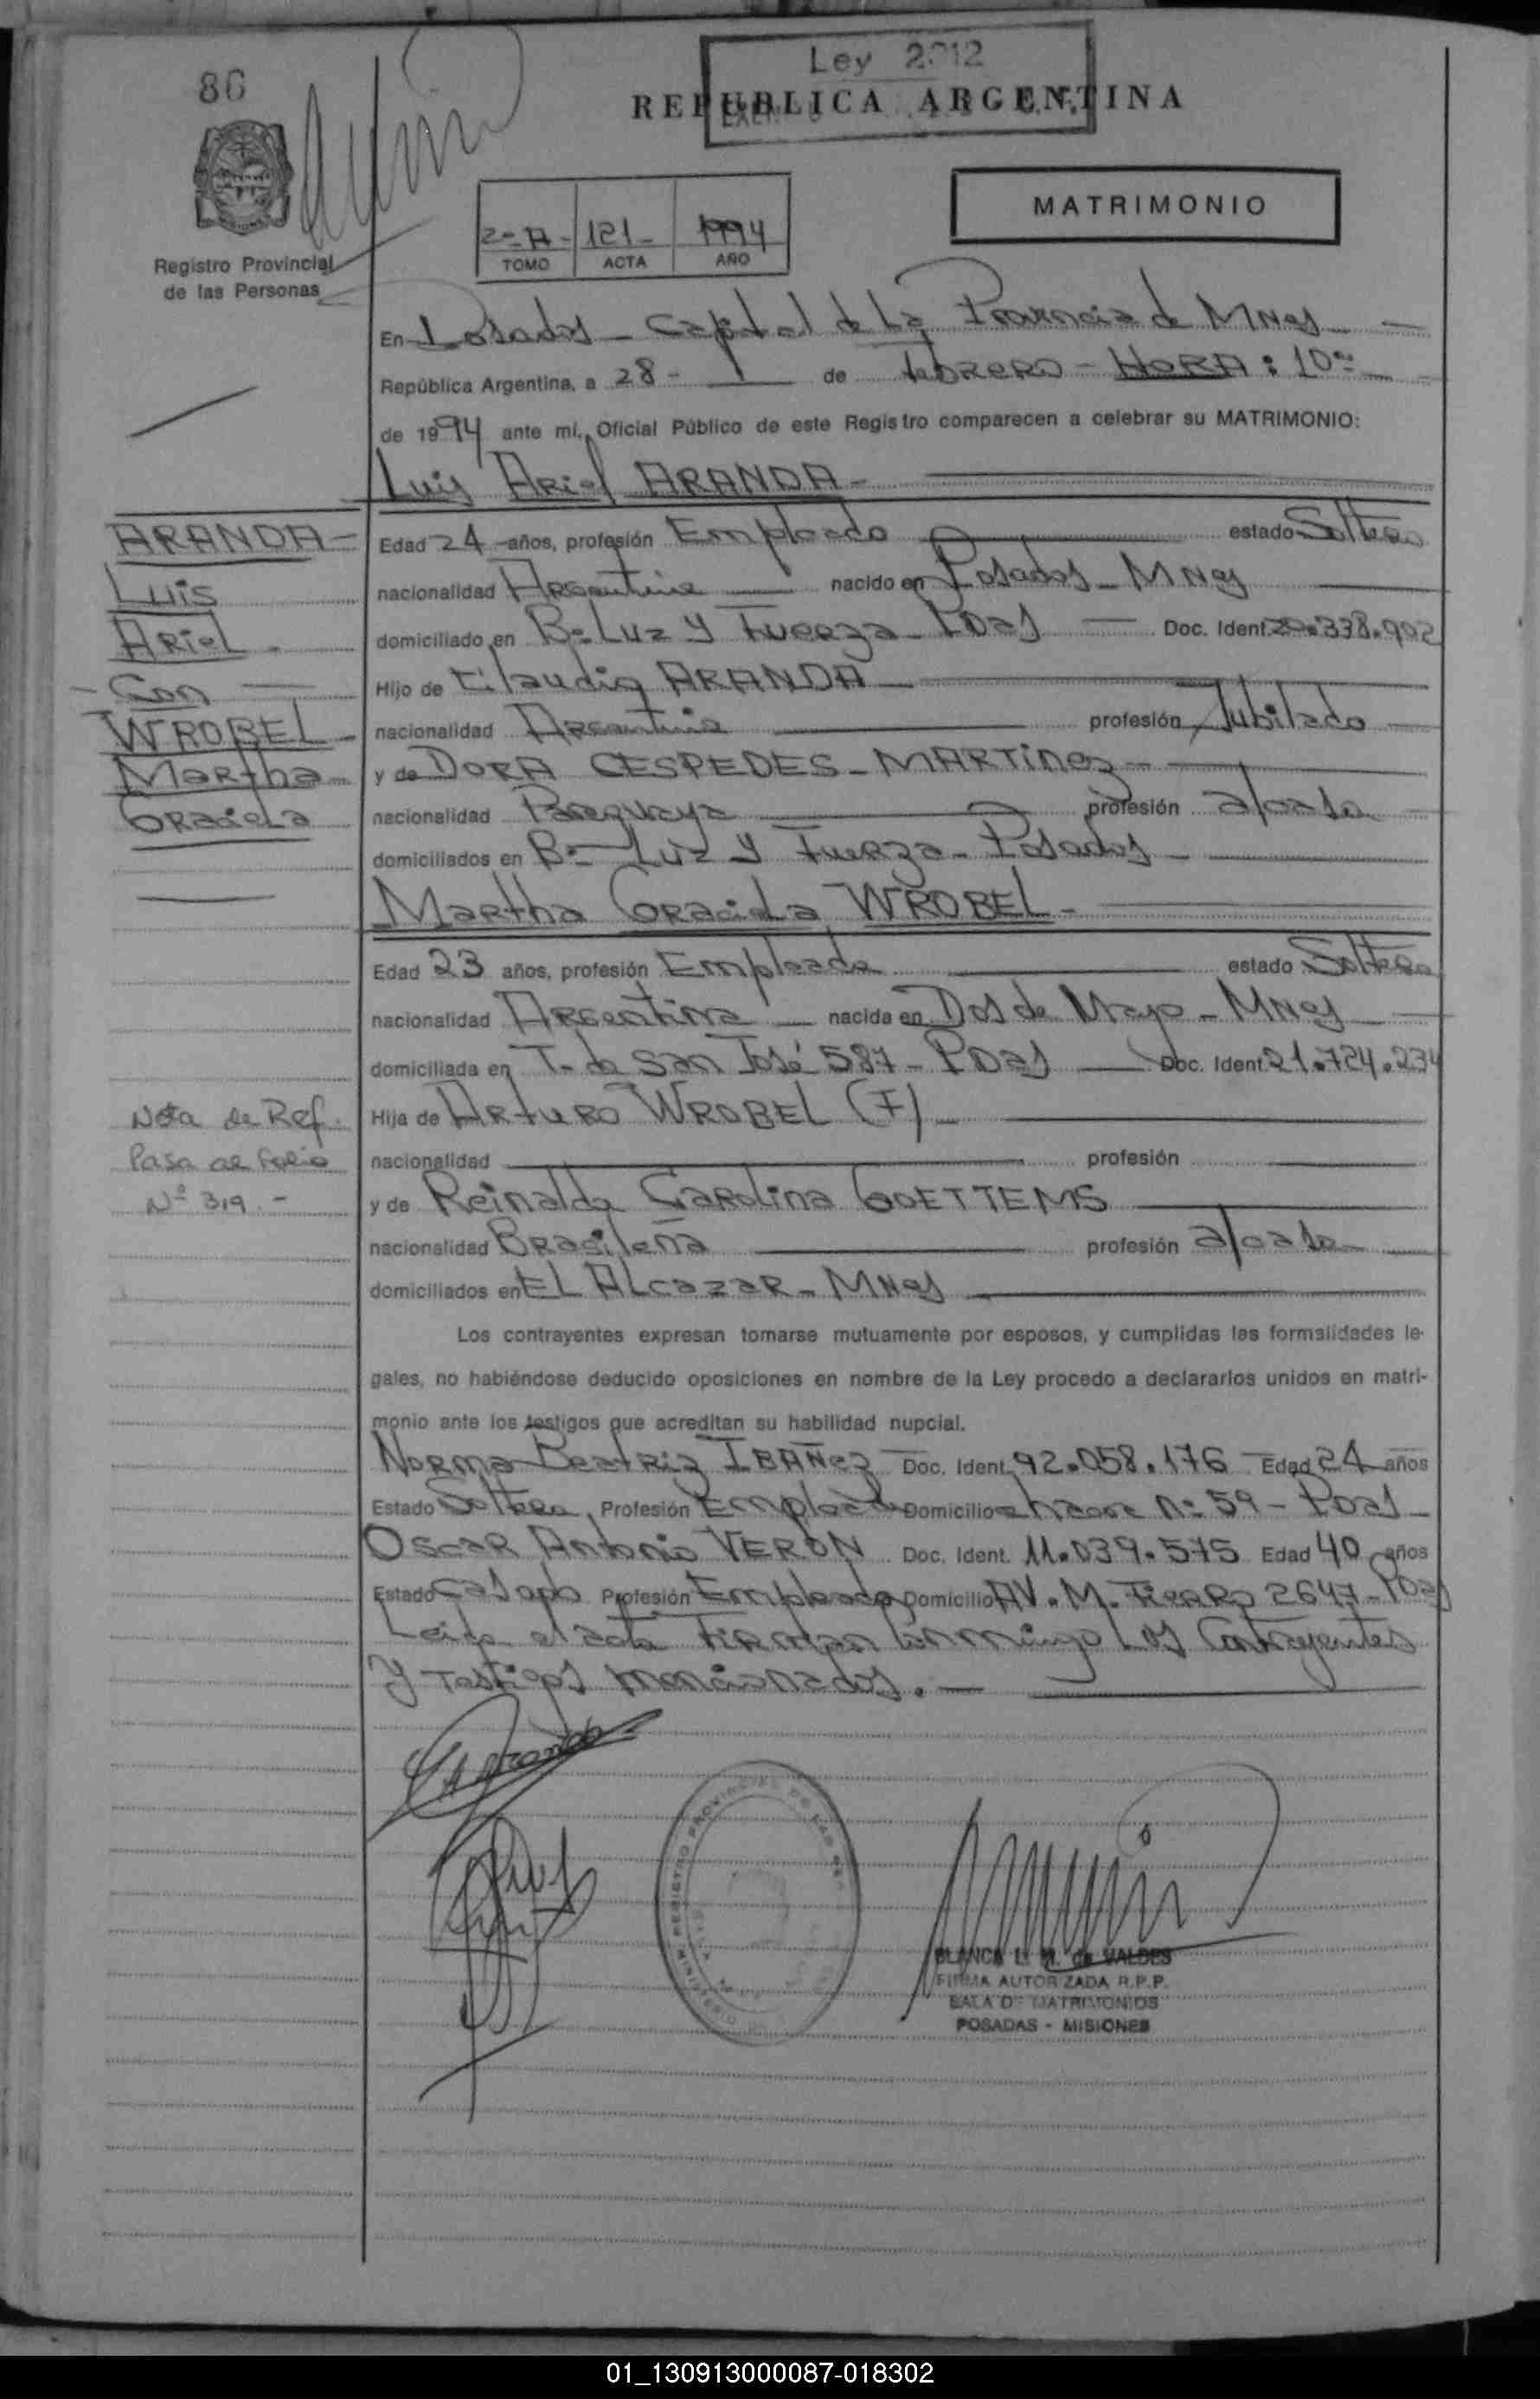 86
Ley 2012
REPUBLICA ARGENTINA
MATRIMONIO
2º A - 121 - 1994
TOMO ACTA AÑO
Registro Provincial
de las Personas
En Posadas - Capital de La Provincia de MNes
República Argentina, a 28 - de Febrero - HORA: 10
de 1994 ante mí, Oficial Público de este Registro comparecen a celebrar su MATRIMONIO:
Luis Ariel ARANDA -
ARANDA -
Luis
Ariel -
- Con
WROBEL -
Martha -
Graciela
Edad 24 años, profesión Empleado estado Soltero
nacionalidad Argentina nacido en Posados - MNes
domiciliado en Bº Luz y Fuerza - Pdas Doc. Ident. 20.338.902
Hijo de ARANDA
nacionalidad Argentina profesión Jubilado
y de DORA CESPEDES - MARTINez -
nacionalidad Paraguaya profesión
domiciliados en Bº Luz y Fuerza - Posadas
Martha Graciela WROBEL -
Edad 23 años, profesión Empleada estado Soltera
nacionalidad Argentina nacida en Dos de Mayo - MNes
domiciliada en T. de San José 587 - Pdas Doc. Ident. 21.724.234
Hija de Arturo WROBEL (F)
nacionalidad profesión
y de Reinalda Carolina GOETTEMS
nacionalidad Brasileña profesión
domiciliados en EL Alcazar - MNes
Nota de Ref.
Pasa al folio
Nº 319. -
Los contrayentes expresan tomarse mutuamente por esposos, y cumplidas las formalidades le-
gales, no habiéndose deducido oposiciones en nombre de la Ley procedo a declararlos unidos en matri-
monio ante los testigos que acreditan su habilidad nupcial.
Norma Beatriz IBAÑez Doc. Ident. 92.058.176 Edad 24 años
Estado Soltera, Profesión Empleada Domicilio Nº 59 - Pdas
Oscar Antonio VERON Doc. Ident. 11.039.575 Edad 40 años
Estado Casado Profesión Empleado Domicilio AV. M. 2647 - Pdas
Leida el acta Firman conmigo Los Contrayentes
y Testigos mencionados. -
REGISTRO PROVINCIAL DE LAS
MINISTERIO
BLANCA L. M. de VALDES
FIRMA AUTORIZADA R.P.P.
SALA DE MATRIMONIOS
POSADAS - MISIONES
01_130913000087-018302